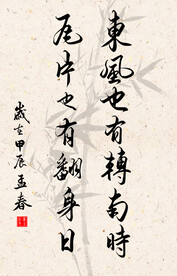 東風也有轉南時
瓦片也有翻身日
歲在甲辰孟春